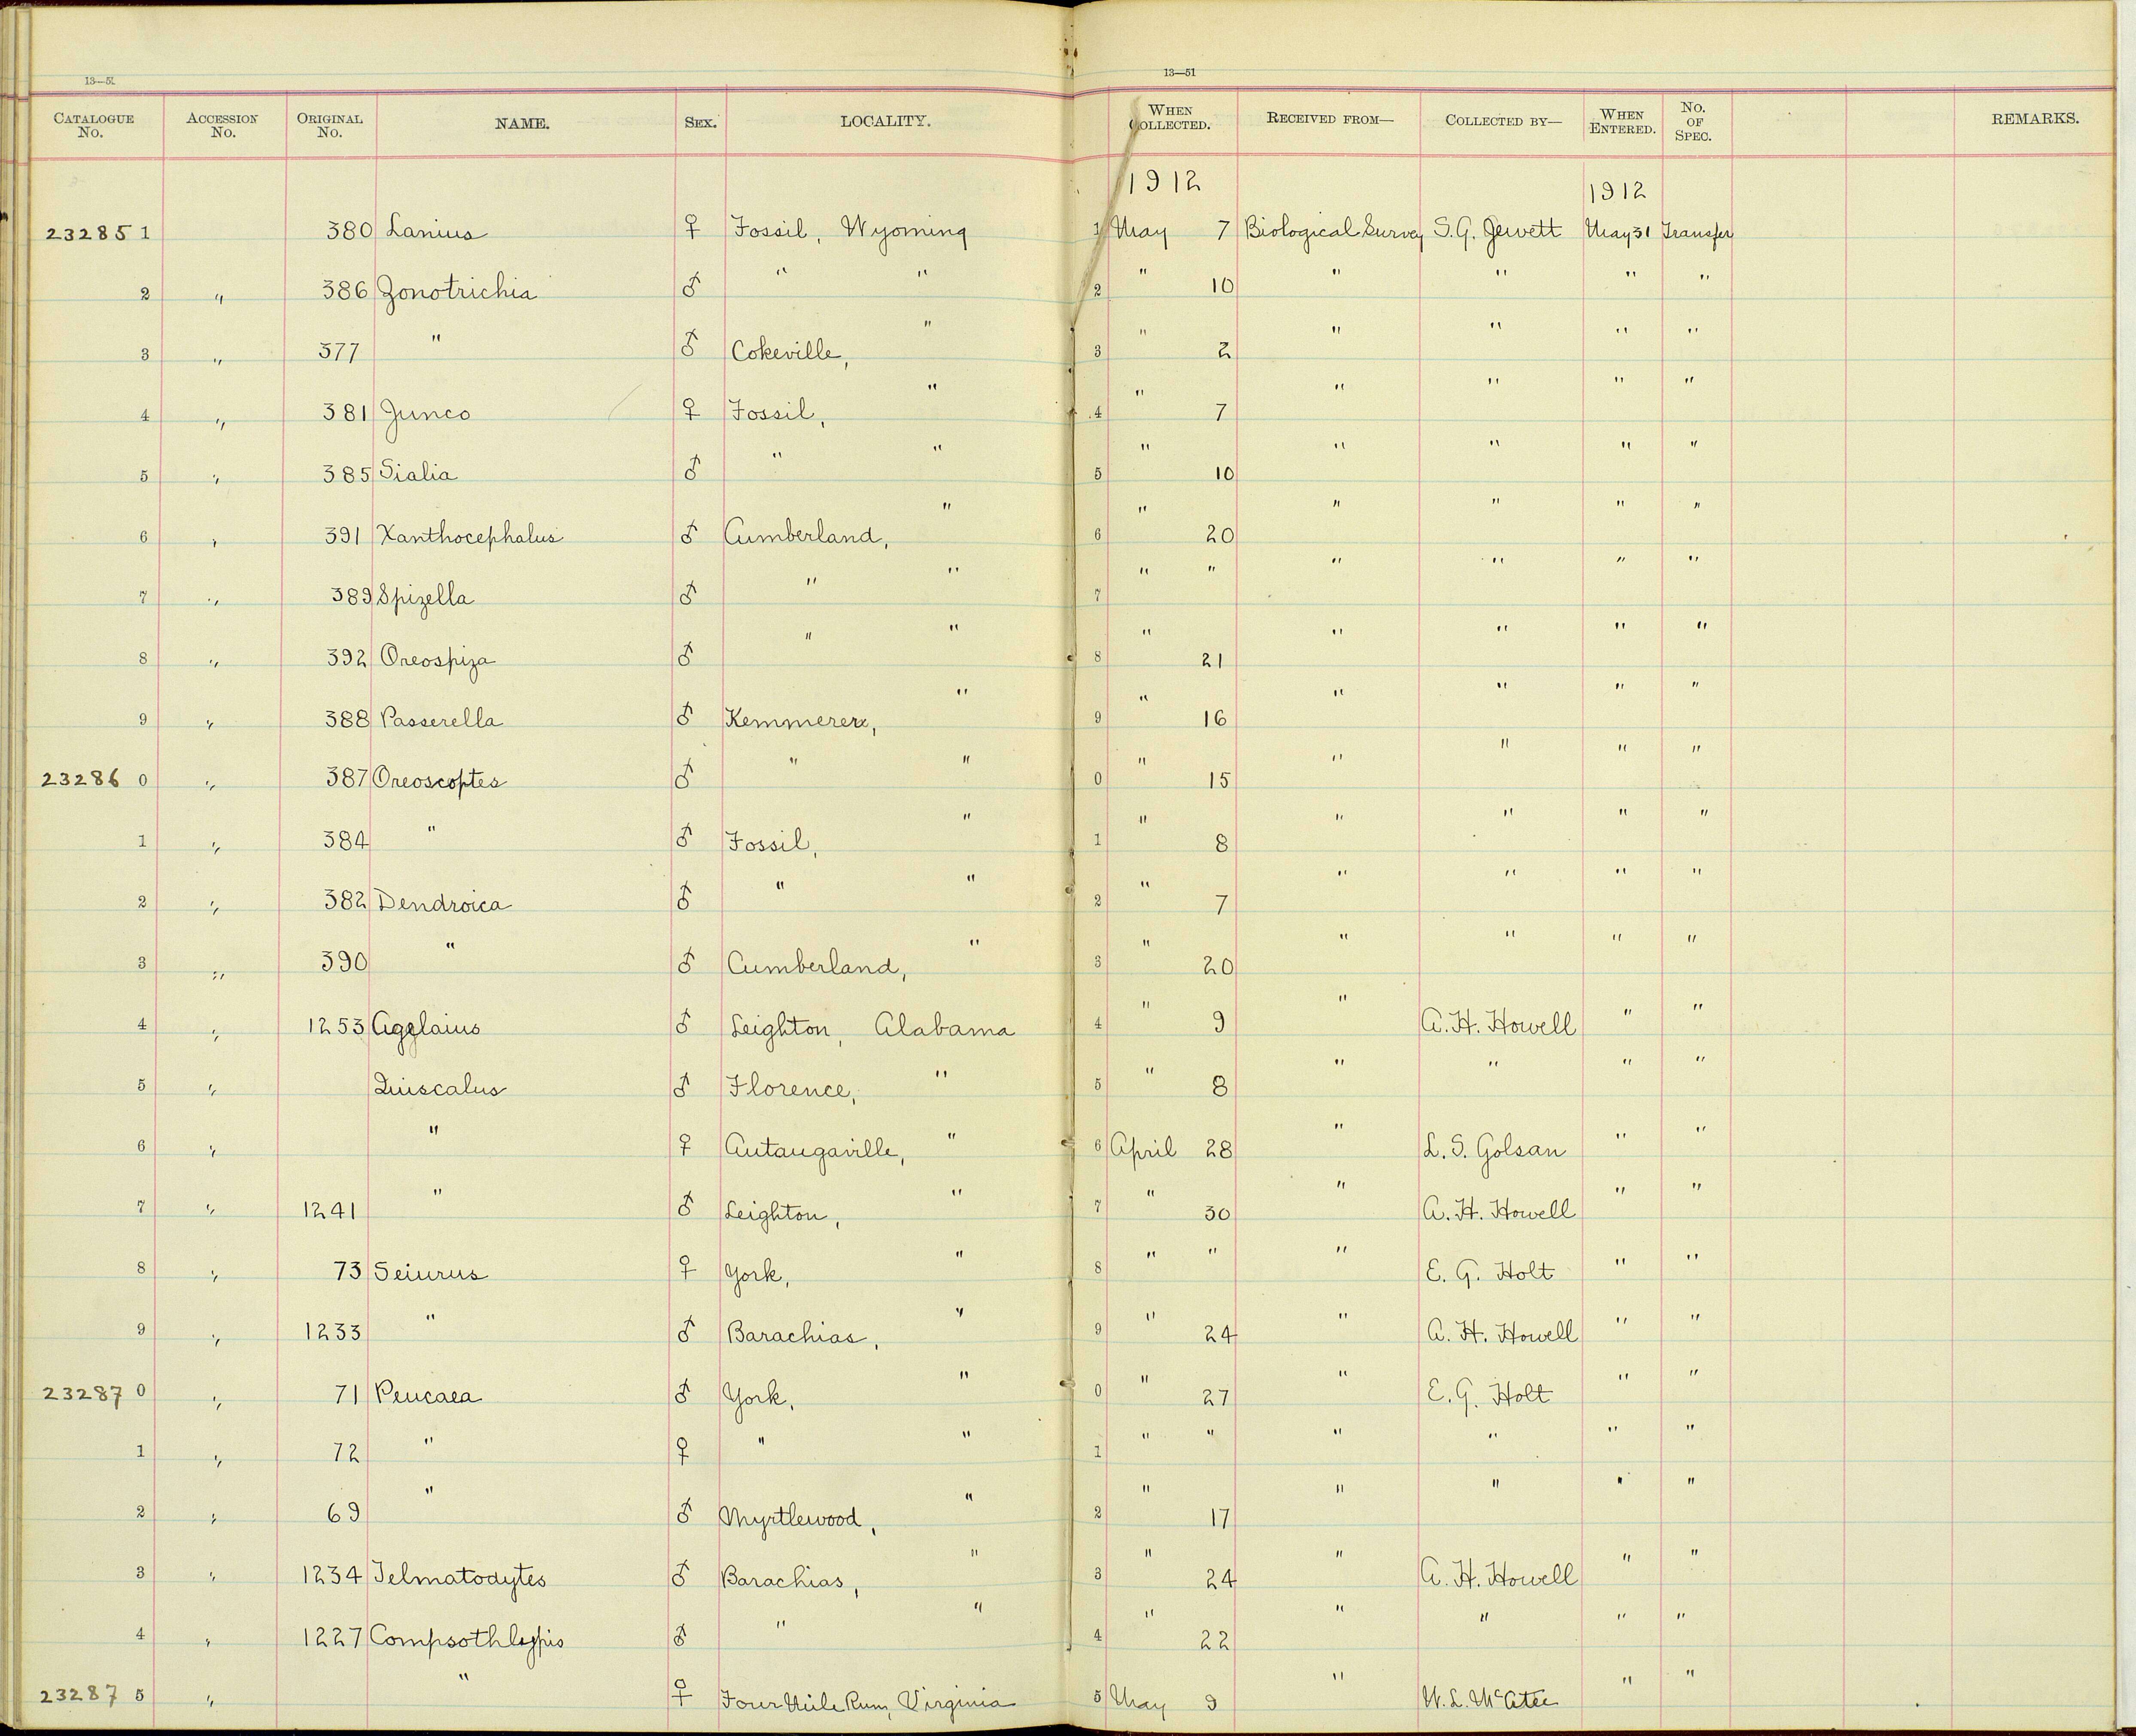 13—51
13—51
CATALOGUE No. ACCESSION No. ORIGINAL No. NAME. SEX. LOCALITY. WHEN COLLECTED. RECEIVED FROM— COLLECTED BY— WHEN ENTERED. No. OF SPEC. REMARKS.
1912 1912
23285 1 380 Lanius ♀ Fossil, Wyoming 1 May 7 Biological Survey S.G. Jewett May 31 Transfer
2 " 386 Zonotrichia ♂ " " 2 " 10 " " " "
3 " 377 " ♂ Cokeville, " 3 " 2 " " " "
4 " 381 Junco ♀ Fossil, " 4 " 7 " " " "
5 " 385 Sialia ♂ " " 5 " 10 " " " "
6 " 391 Xanthocephalus ♂ Cumberland, " 6 " 20 " " " "
7 " 389 Spizella ♂ " " 7 " " " " " "
8 " 392 Oreospiza ♂ " " 8 " 21 " " " "
9 " 388 Passerella ♂ Kemmerer, " 9 " 16 " " " "
23286 0 " 387 Oreoscoptes ♂ " " 0 " 15 " " " "
1 " 384 " ♂ Fossil, " 1 " 8 " " " "
2 " 382 Dendroica ♂ " " 2 " 7 " " " "
3 " 390 " ♂ Cumberland, " 3 " 20 " " " "
4 " 1253 Agelaius ♂ Leighton, Alabama 4 " 9 " A. H. Howell " "
5 " Quiscalus ♂ Florence, " 5 " 8 " " " "
6 " " ♀ Autaugaville, " 6 April 28 " L. S. Golsan " "
7 " 1241 " ♂ Leighton, " 7 " 30 " A. H. Howell " "
8 " 73 Seiurus ♀ York, " 8 " " " E. G. Holt " "
9 " 1233 " ♂ Barachias, " 9 " 24 " A. H. Howell " "
23287 0 " 71 Peucaea ♂ York, " 0 " 27 " E. G. Holt " "
1 " 72 " ♀ " " 1 " " " " " "
2 " 69 " ♂ Myrtlewood, " 2 " 17 " " " "
3 " 1234 Telmatodytes ♂ Barachias, " 3 " 24 " A. H. Howell " "
4 " 1227 Compsothlypis ♂ " " 4 " 22 " " " "
23287 5 " " ♀ Four Mile Run, Virginia 5 May 9 " W. L. McAtee " "